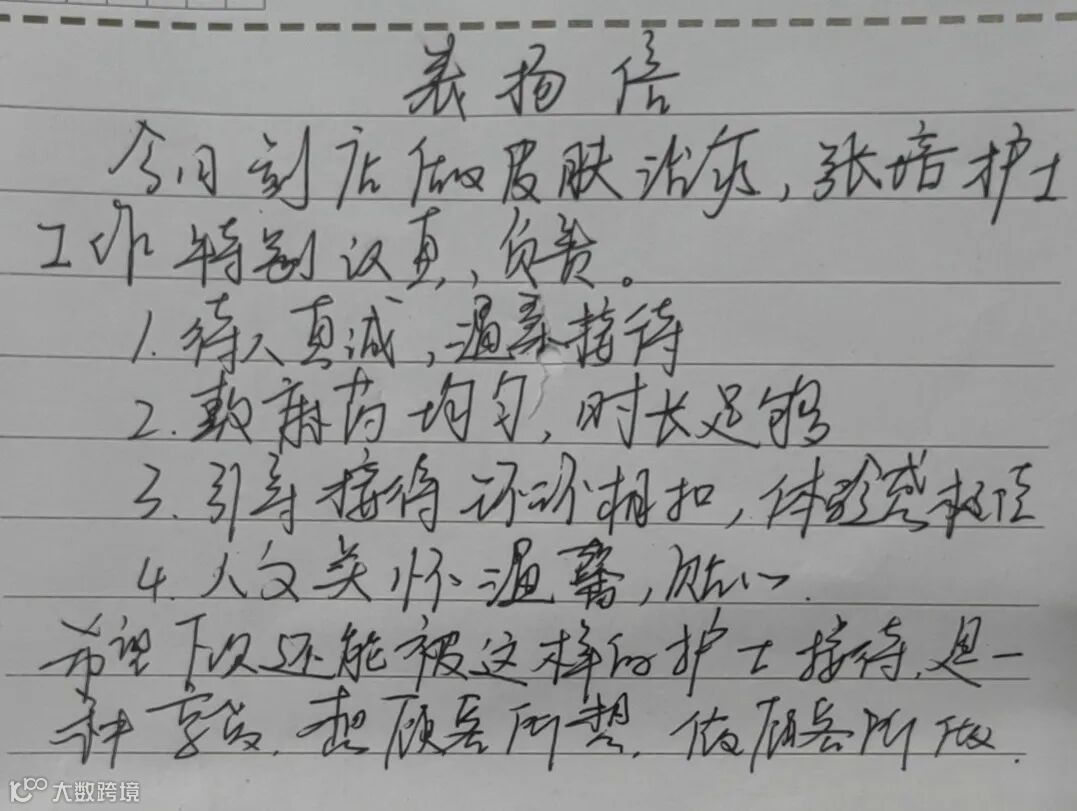 表扬信
今日到店做皮肤治疗，张培护士
工作特别认真，负责。
1. 待人真诚，温柔接待
2. 敷麻药均匀，时长足够
3. 引导接待环环相扣，体验感极佳
4. 人文关怀温馨，贴心.
希望下次还能被这样的护士接待，是一
种享受. 想顾客所想. 做顾客所做.
大数跨境